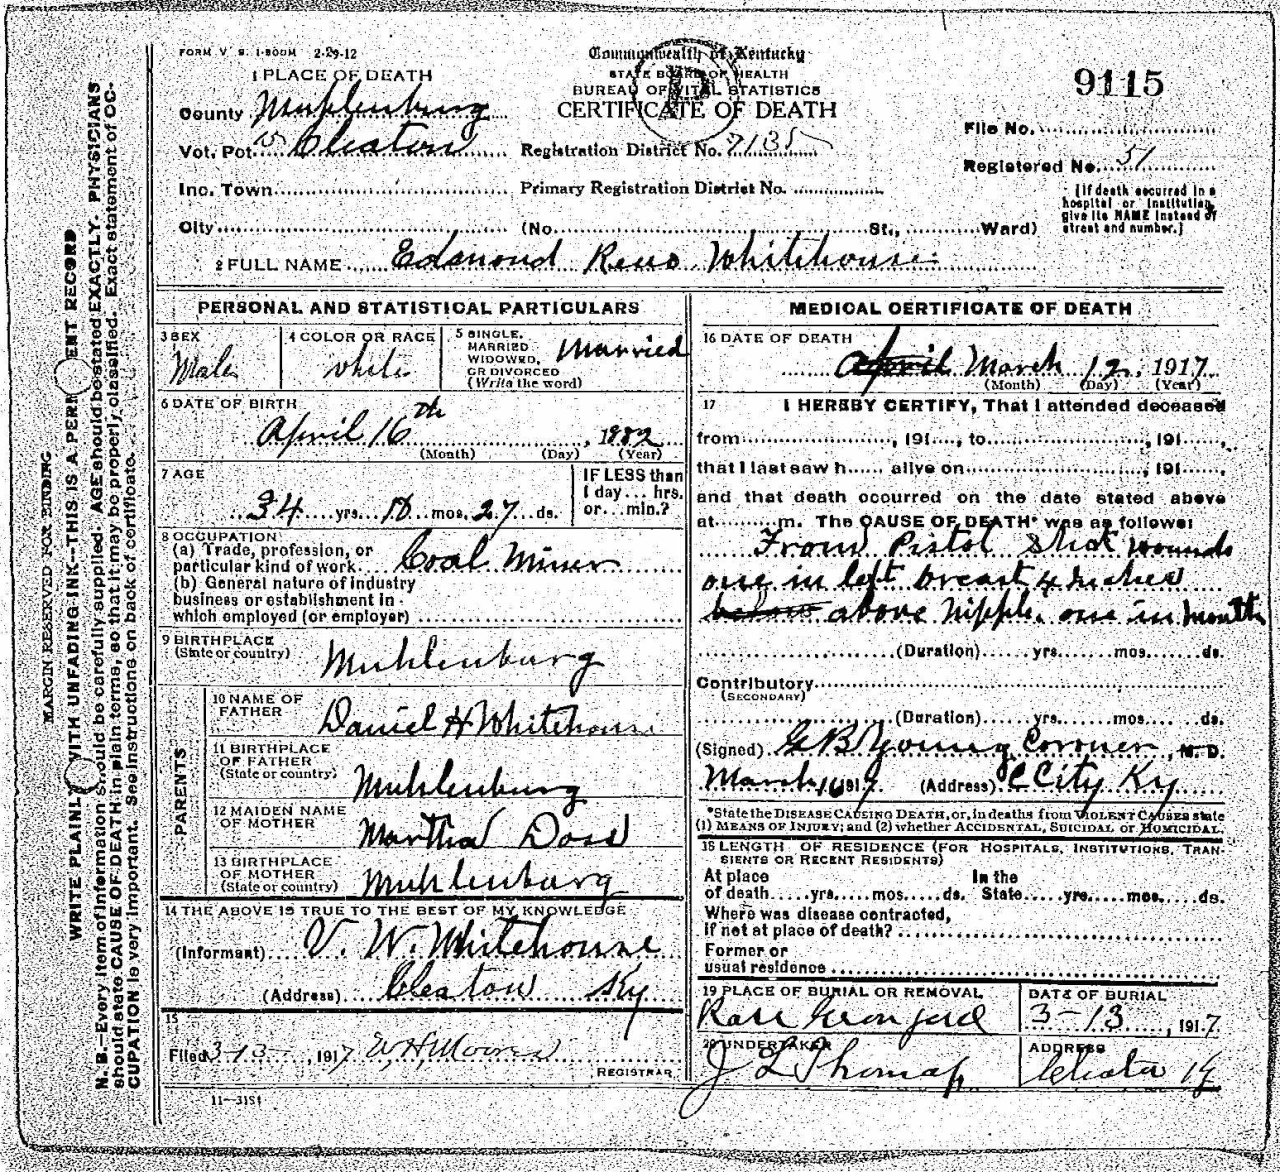 FORM V. S. 1-500M 2-29-12
Commonwealth of Kentucky
STATE BOARD OF HEALTH
BUREAU OF VITAL STATISTICS
CERTIFICATE OF DEATH
9115
1 PLACE OF DEATH
County Muhlenburg
Vot. Pct. Cleaton Registration District No. 7135
File No.
Registered No. 51
Inc. Town Primary Registration District No.
City (No. St., Ward)
(If death occurred in a hospital or institution, give its NAME instead of street and number.)
2 FULL NAME Edmond Reno Whitehouse
PERSONAL AND STATISTICAL PARTICULARS
3 SEX Male
4 COLOR OR RACE white
5 SINGLE, MARRIED WIDOWED, OR DIVORCED (Write the word) Married
6 DATE OF BIRTH
April 16th, 1882
(Month) (Day) (Year)
7 AGE
34 yrs. 10 mos. 27 ds.
IF LESS than 1 day... hrs. or... min.?
8 OCCUPATION
(a) Trade, profession, or particular kind of work Coal Miner
(b) General nature of industry
business or establishment in
which employed (or employer)
9 BIRTHPLACE
(State or country) Muhlenburg
PARENTS
10 NAME OF FATHER Daniel H Whitehouse
11 BIRTHPLACE OF FATHER (State or country) Muhlenburg
12 MAIDEN NAME OF MOTHER Martha Doss
13 BIRTHPLACE OF MOTHER (State or country) Muhlenburg
14 THE ABOVE IS TRUE TO THE BEST OF MY KNOWLEDGE
(Informant) V. W. Whitehouse
(Address) Cleaton Ky
15
Filed 3-13-, 1917 W H Moore
REGISTRAR
11-3151
MEDICAL CERTIFICATE OF DEATH
16 DATE OF DEATH
April March 12, 1917
(Month) (Day) (Year)
17 I HEREBY CERTIFY, That I attended deceased
from, 191, to, 191,
that I last saw h alive on, 191,
and that death occurred on the date stated above
at m. The CAUSE OF DEATH* was as follows:
From Pistol Shot wounds
one in left breast 4 inches
below above nipple. one in mouth
(Duration) yrs. mos. ds.
Contributory
(SECONDARY)
(Duration) yrs. mos. ds.
(Signed) G B Young Corroner, M. D.
March 16 1917 (Address) C City Ky
*State the DISEASE CAUSING DEATH, or, in deaths from VIOLENT CAUSES state
(1) MEANS OF INJURY; and (2) whether ACCIDENTAL, SUICIDAL or HOMICIDAL.
18 LENGTH OF RESIDENCE (FOR HOSPITALS, INSTITUTIONS, TRANSIENTS OR RECENT RESIDENTS)
At place In the
of death yrs. mos. ds. State yrs. mos. ds.
Where was disease contracted,
if not at place of death?
Former or
usual residence
19 PLACE OF BURIAL OR REMOVAL
DATE OF BURIAL
3-13, 1917
20 UNDERTAKER
J L Thomas
ADDRESS
Cleaton Ky
MARGIN RESERVED FOR BINDING
WRITE PLAINLY WITH UNFADING INK--THIS IS A PERMANENT RECORD
N. B.--Every item of information should be carefully supplied. AGE should be stated EXACTLY. PHYSICIANS
should state CAUSE OF DEATH in plain terms, so that it may be properly classified. Exact statement of OC-
CUPATION is very important. See instructions on back of certificate.